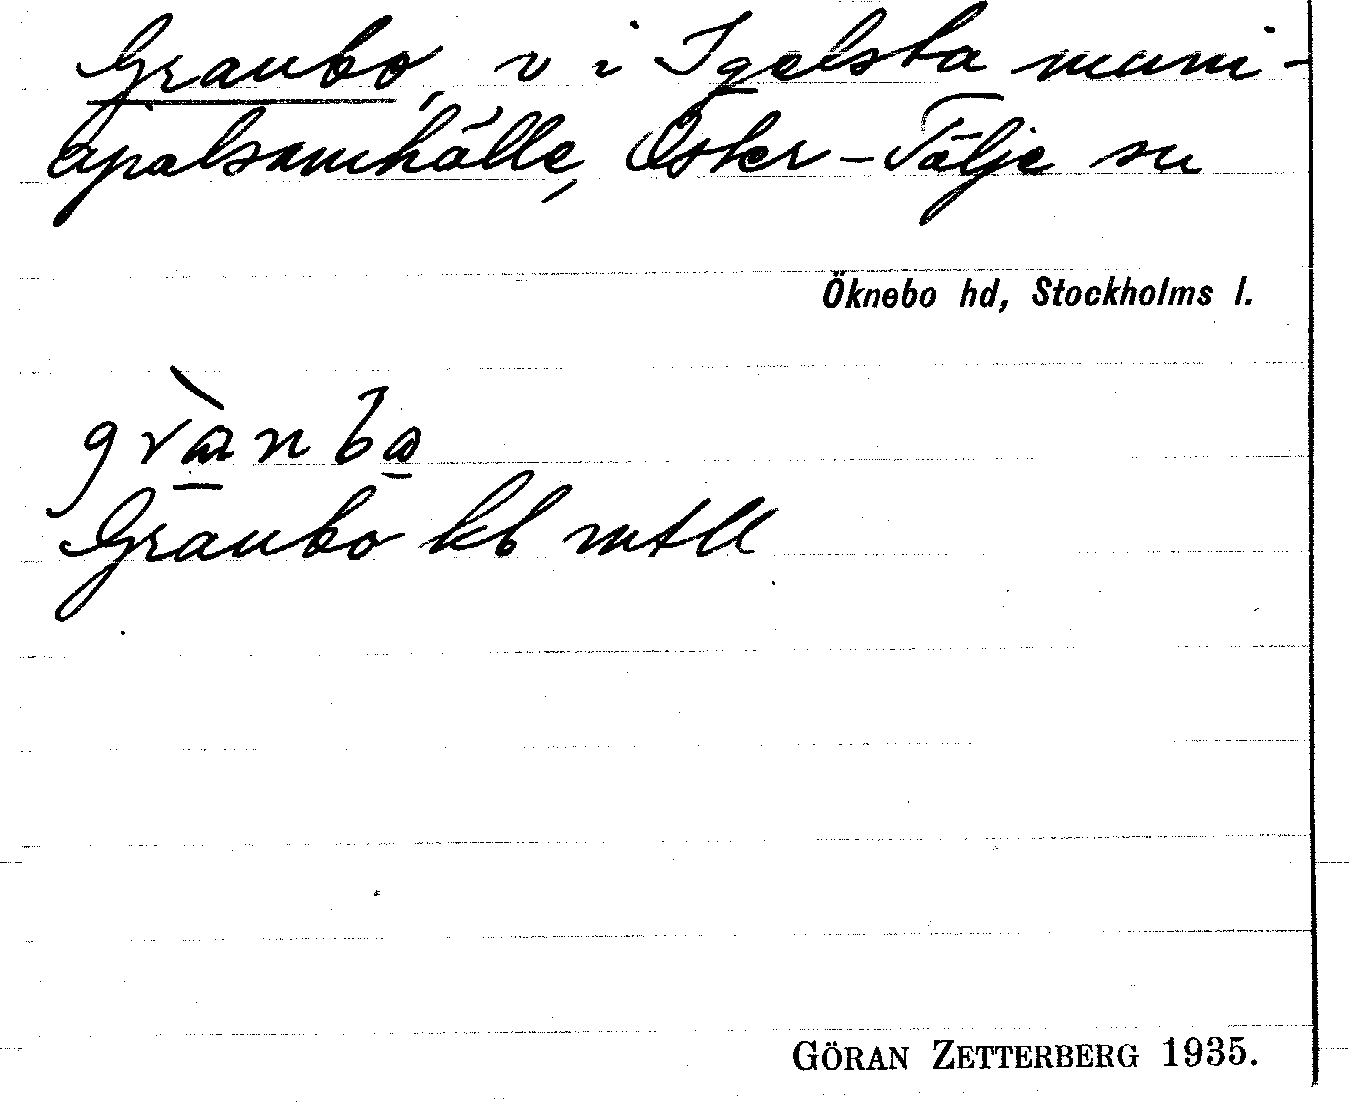 Granbo, v i Igelsta muni-
cipalsamhälle, Öster-Tälje sn
Öknebo hd, Stockholms l.
Granbo kb mtll
GÖRAN ZETTERBERG 1935.